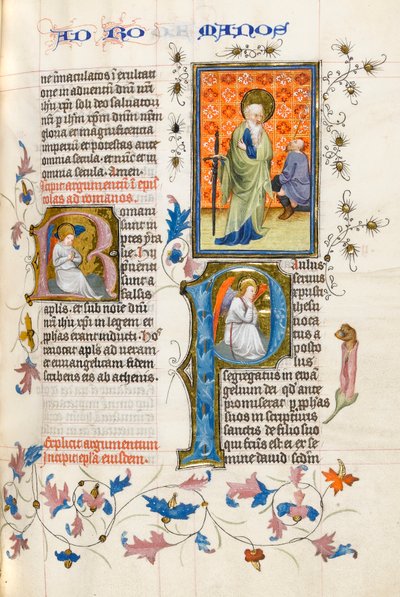 AD RO MANOS
ne inmaculatos ī exultati
one in adventū dnī nrī
ihu xpi soli deo salvatori
nrō p ihm xpm dnm nrm
gloria et magnificentia
imperiū et potestas ante
omnia secula et nūc et in
omnia secula. Amen.
Incipit argumentū ī epis
tolas ad romanos.
Romani
sunt in
aplis. et sub noīe dnī
nrī ihu xpi in legem et
pphas erant inducti. Hos
revocat apls ad veram
et evvangelicam fidem
scribens eis ab athenis.
Explicit argumentum
Incipit epla eiusdem.
Paulus
servus
xpi ihesu
voca
tus a
posto
lus
segregatus in evā
gelium dei qd ante
promiserat p pphas
suos in scripturis
sanctis de filio suo
qui factus est ei ex se
mine david scdm